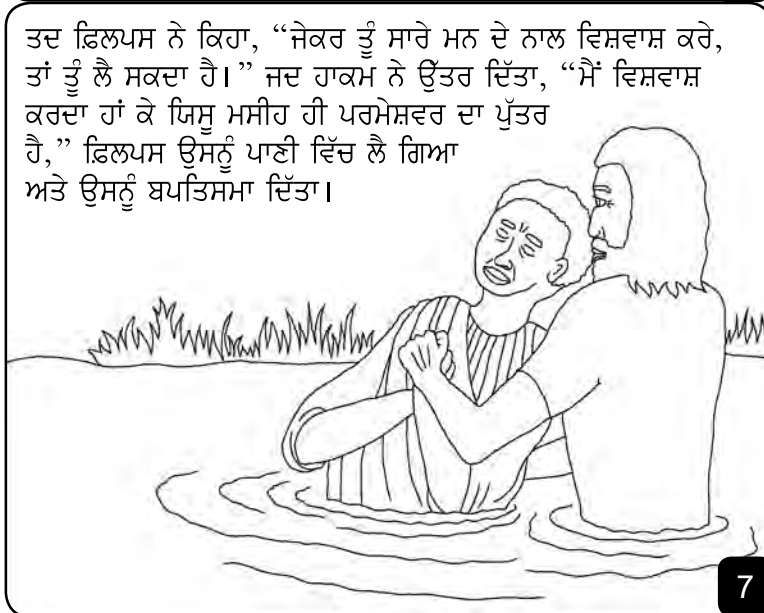 ਤਦ ਫ਼ਿਲਪਸ ਨੇ ਕਿਹਾ, “ਜੇਕਰ ਤੂੰ ਸਾਰੇ ਮਨ ਦੇ ਨਾਲ ਵਿਸ਼ਵਾਸ਼ ਕਰੇ,
ਤਾਂ ਤੂੰ ਲੈ ਸਕਦਾ ਹੈ।” ਜਦ ਹਾਕਮ ਨੇ ਉੱਤਰ ਦਿੱਤਾ, “ਮੈਂ ਵਿਸ਼ਵਾਸ਼
ਕਰਦਾ ਹਾਂ ਕੇ ਯਿਸੂ ਮਸੀਹ ਹੀ ਪਰਮੇਸ਼ਵਰ ਦਾ ਪੁੱਤਰ
ਹੈ,” ਫ਼ਿਲਪਸ ਉਸਨੂੰ ਪਾਣੀ ਵਿੱਚ ਲੈ ਗਿਆ
ਅਤੇ ਉਸਨੂੰ ਬਪਤਿਸਮਾ ਦਿੱਤਾ।
7